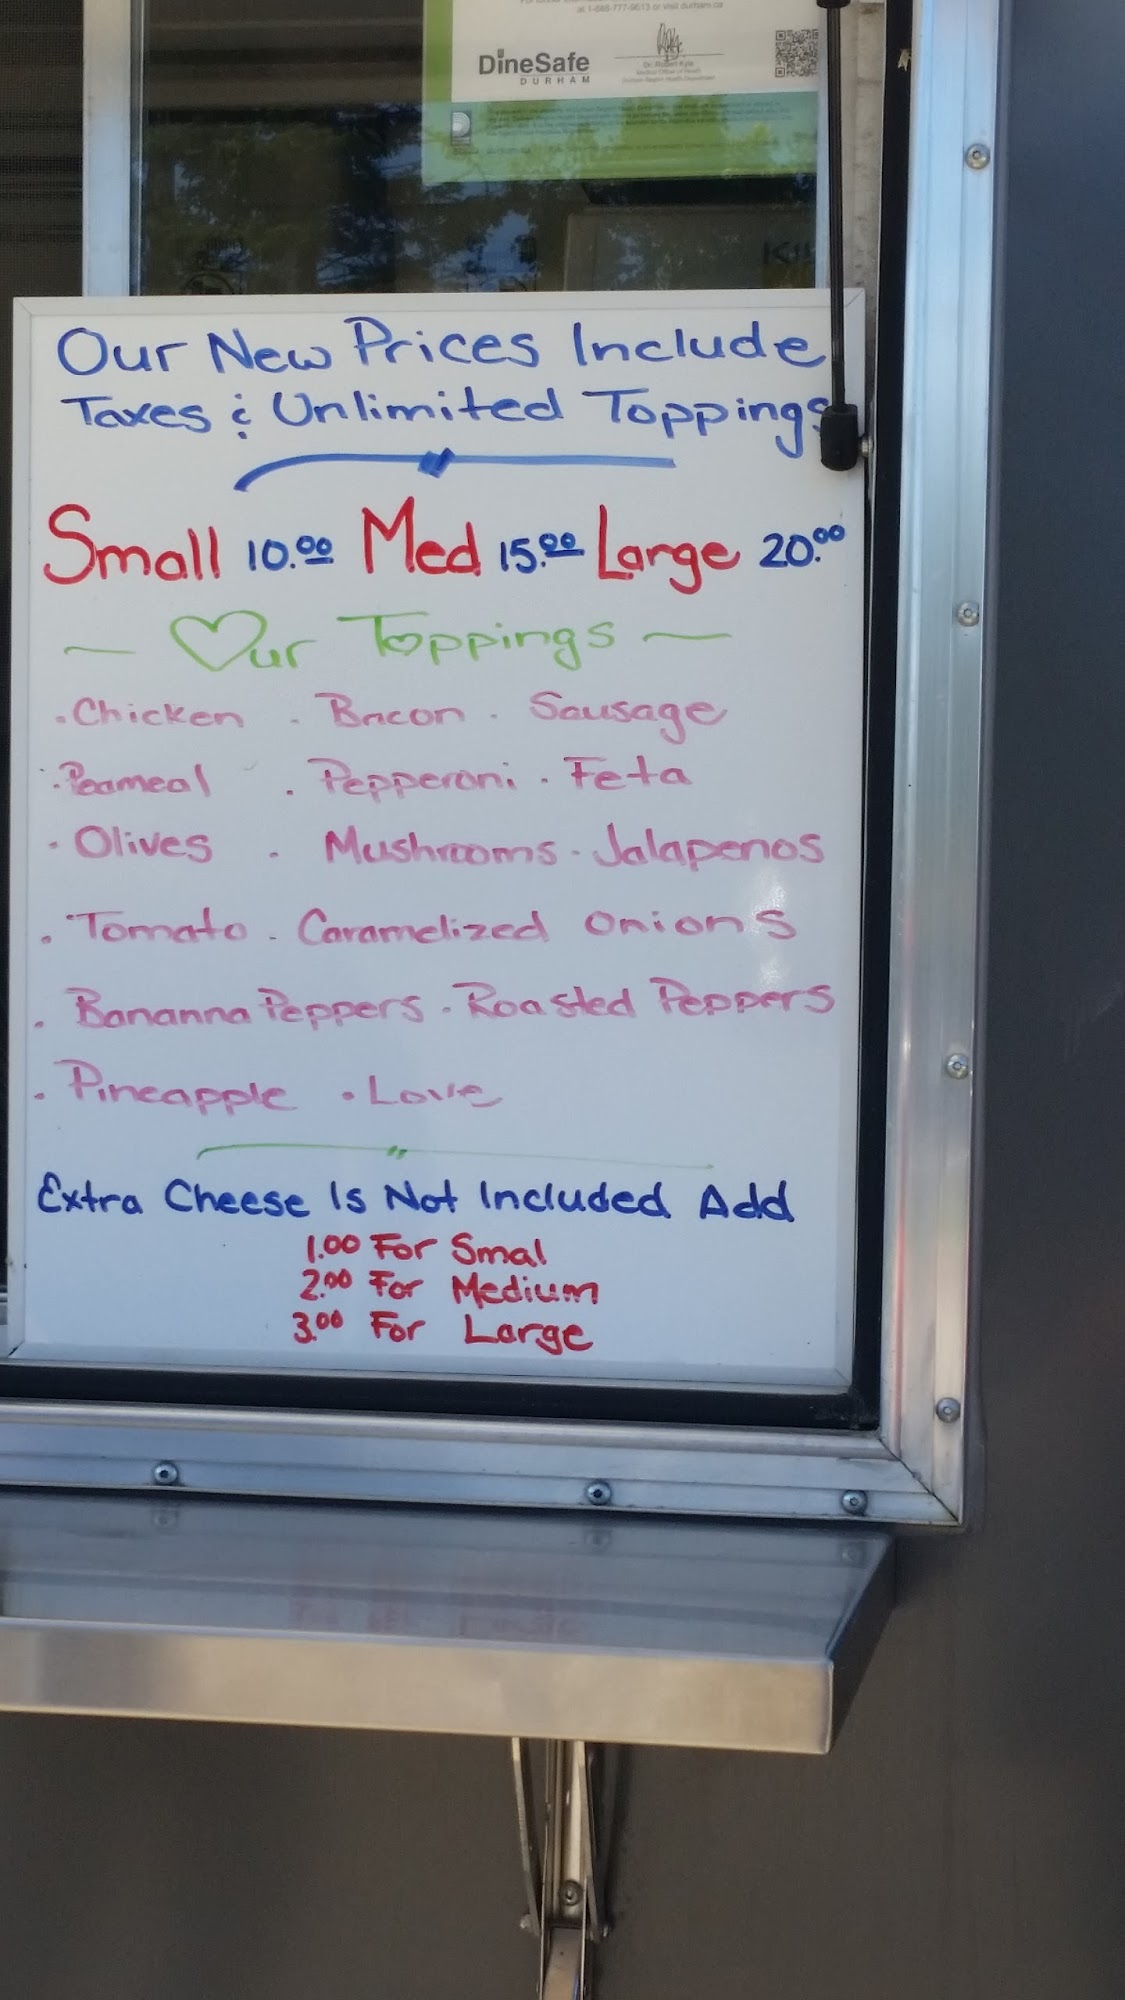 at 1-888-777-9613 or visit durham.ca
DineSafe
DURHAM
Dr. Robert Kyle
Medical Officer of Health
Durham Region Health Department
Our New Prices Include
Taxes & Unlimited Toppings
Small 10.00 Med 15.00 Large 20.00
~ Our Toppings ~
. Chicken . Bacon . Sausage
. Peameal . Pepperoni . Feta
. Olives . Mushrooms . Jalapenos
. Tomato . Caramelized Onions
. Bananna Peppers . Roasted Peppers
. Pineapple . Love
Extra Cheese Is Not Included Add
1.00 For Smal
2.00 For Medium
3.00 For Large